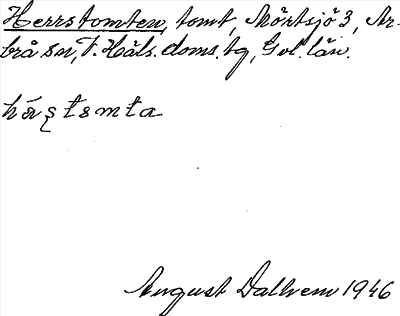 Herrstomten, tomt, Mörtsjö 3, Ar-
brå sn, V. Häls. doms. tg, Gvl. län.
August Dalhem 1946